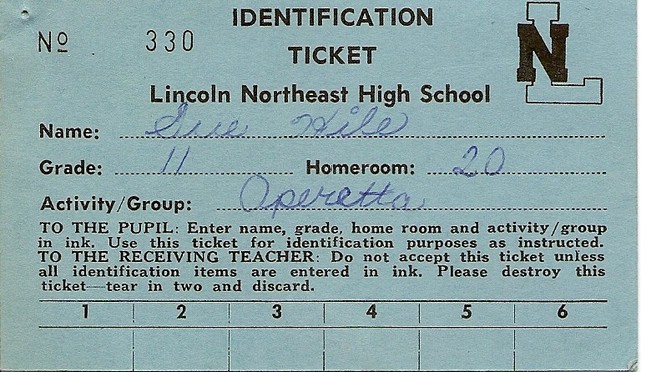 IDENTIFICATION
Nº 330
TICKET
Lincoln Northeast High School
NL
Name: Sue Hile
Grade: 11 Homeroom: 20
Activity/Group: Operetta
TO THE PUPIL: Enter name, grade, home room and activity/group
in ink. Use this ticket for identification purposes as instructed.
TO THE RECEIVING TEACHER: Do not accept this ticket unless
all identification items are entered in ink. Please destroy this
ticket—tear in two and discard.
1 2 3 4 5 6